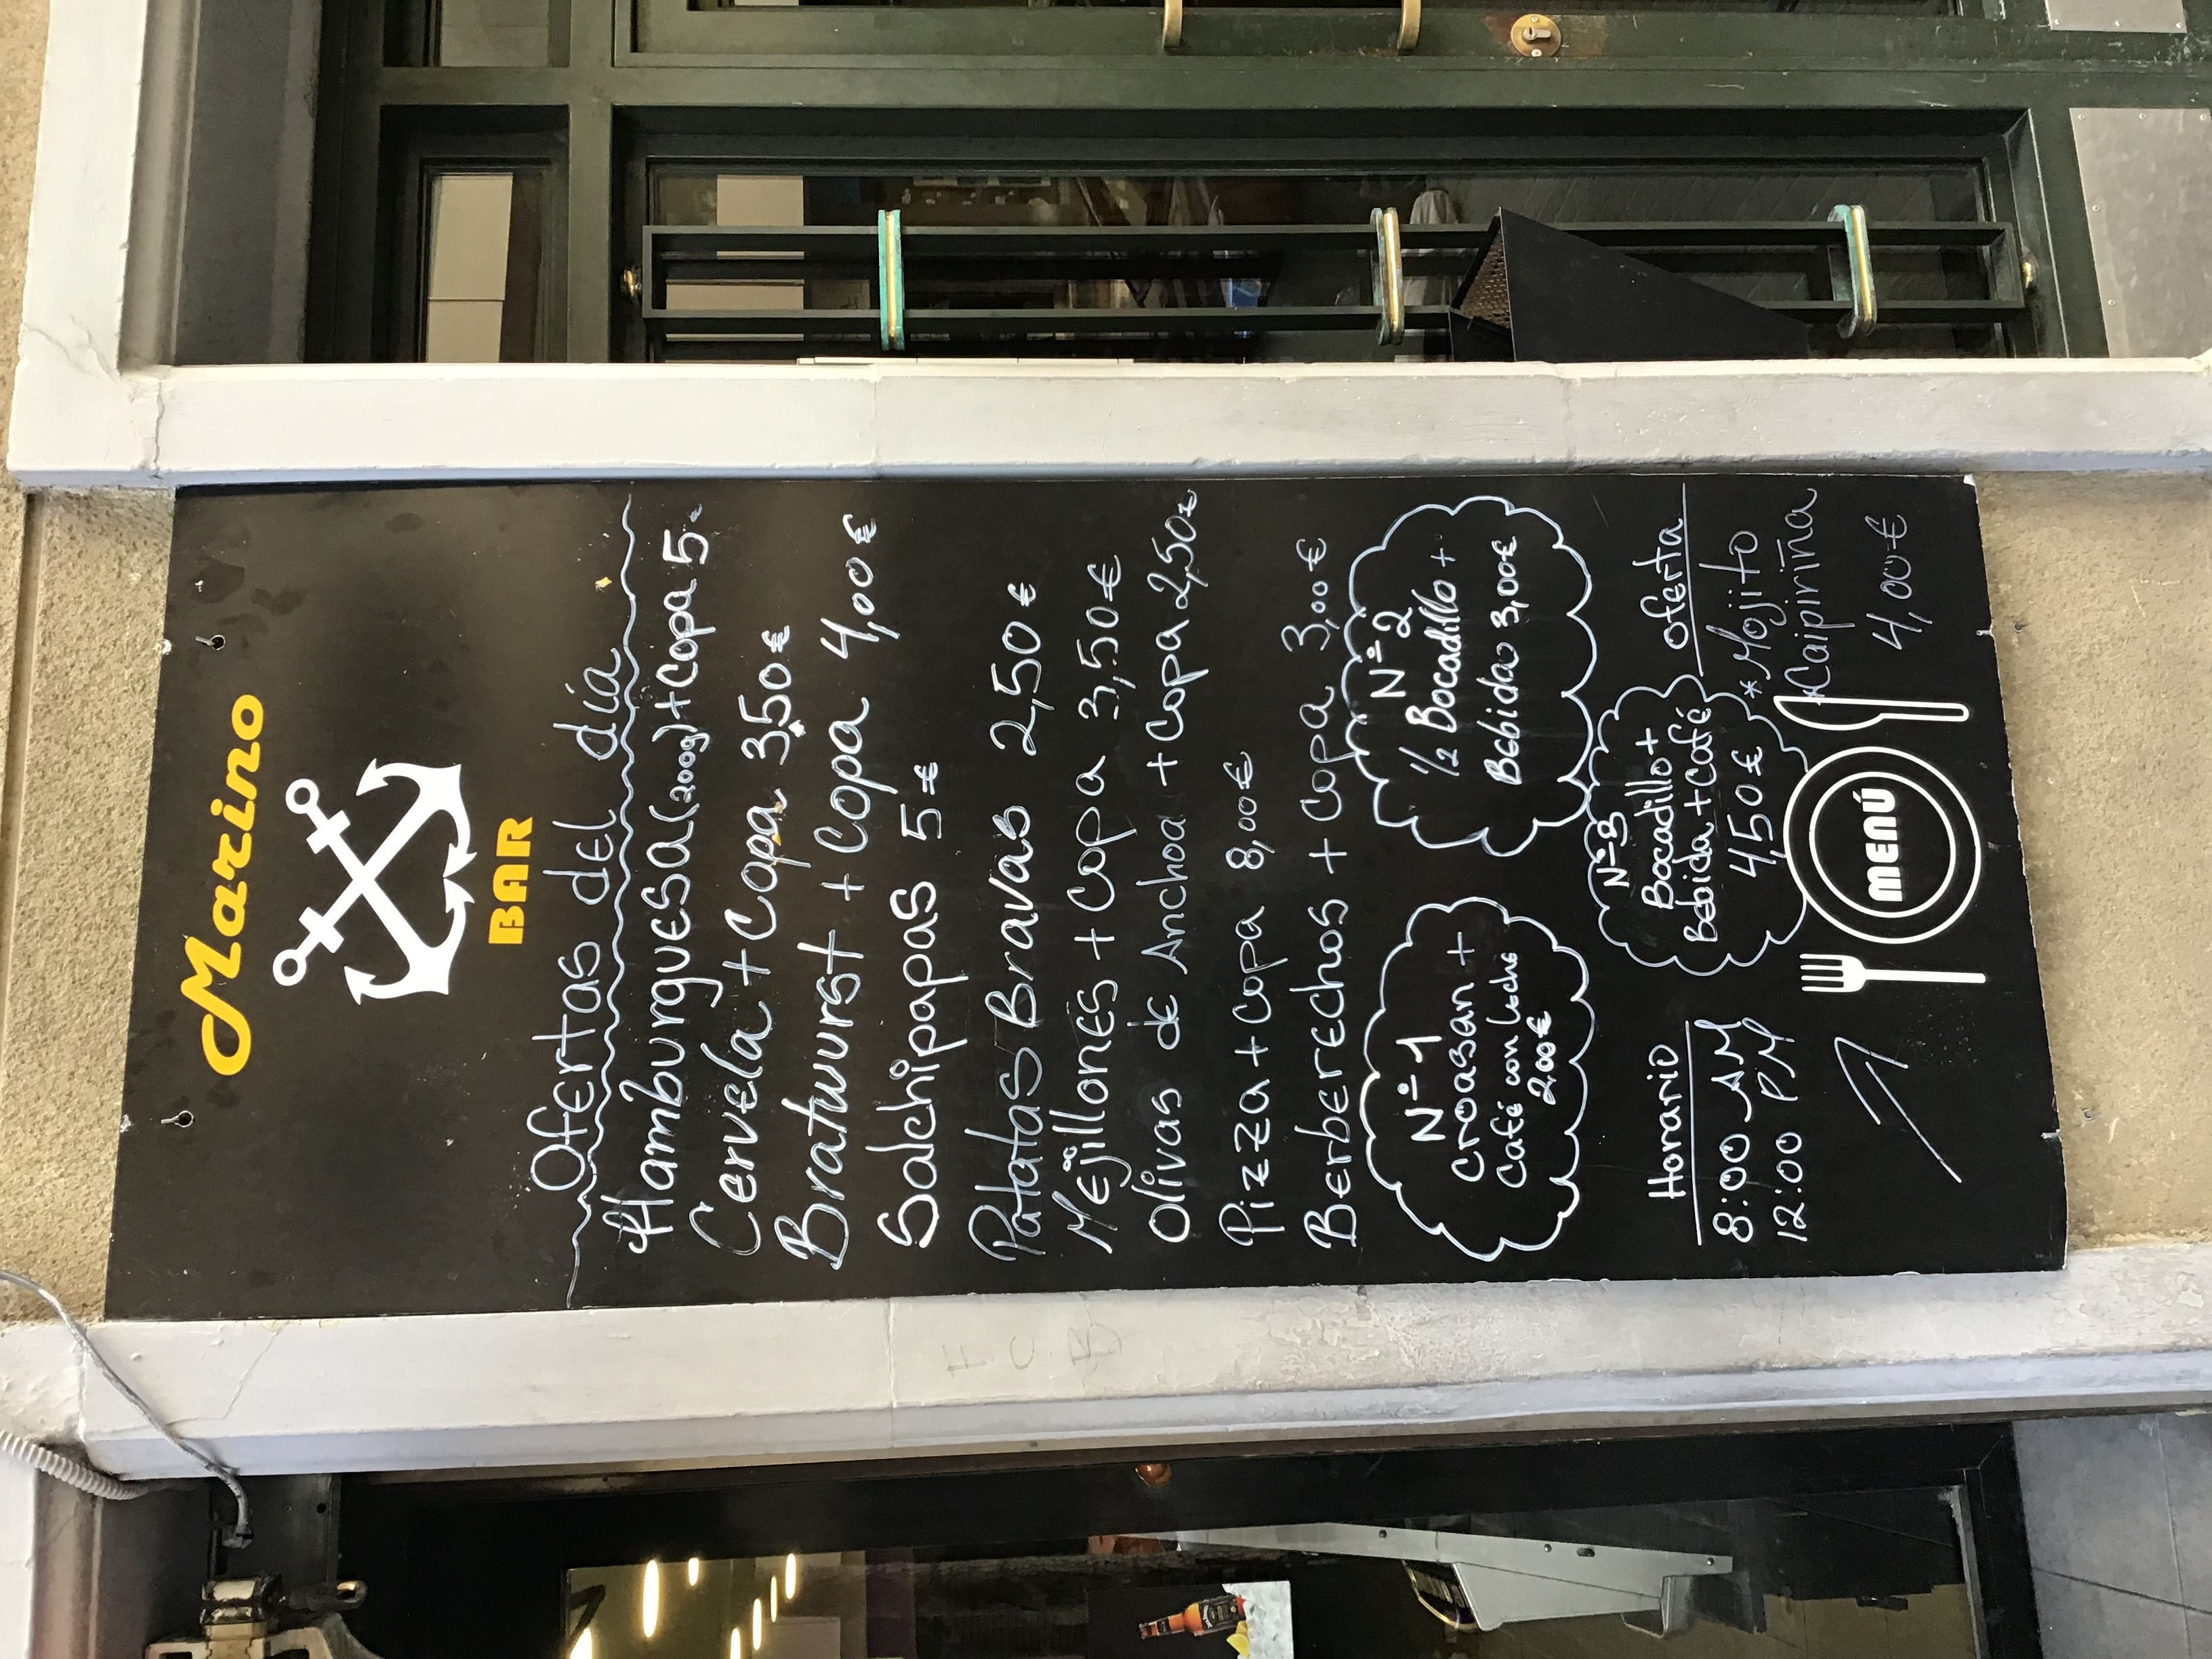 Marino
BAR
Ofertas del día
Hamburguesa (200g) + Copa 5€
Cervela + Copa 3,50€
Bratwurst + Copa 4,00€
Salchipapas 5€
Patatas Bravas 2,50€
Mejillones + Copa 3,50€
Olivas de Anchoa + Copa 2,50€
Pizza + Copa 8,00€
Berberechos + Copa 3,00€
Nº 1
Croasan +
Café con leche
2,00€
Nº 2
1/2 Bocadillo +
Bebida 3,00€
Nº 3
Bocadillo +
Bebida + Café
4,50€
Horario
8:00 AM
12:00 PM
oferta
* Mojito
* Caipiriña
4,00€
MENÚ